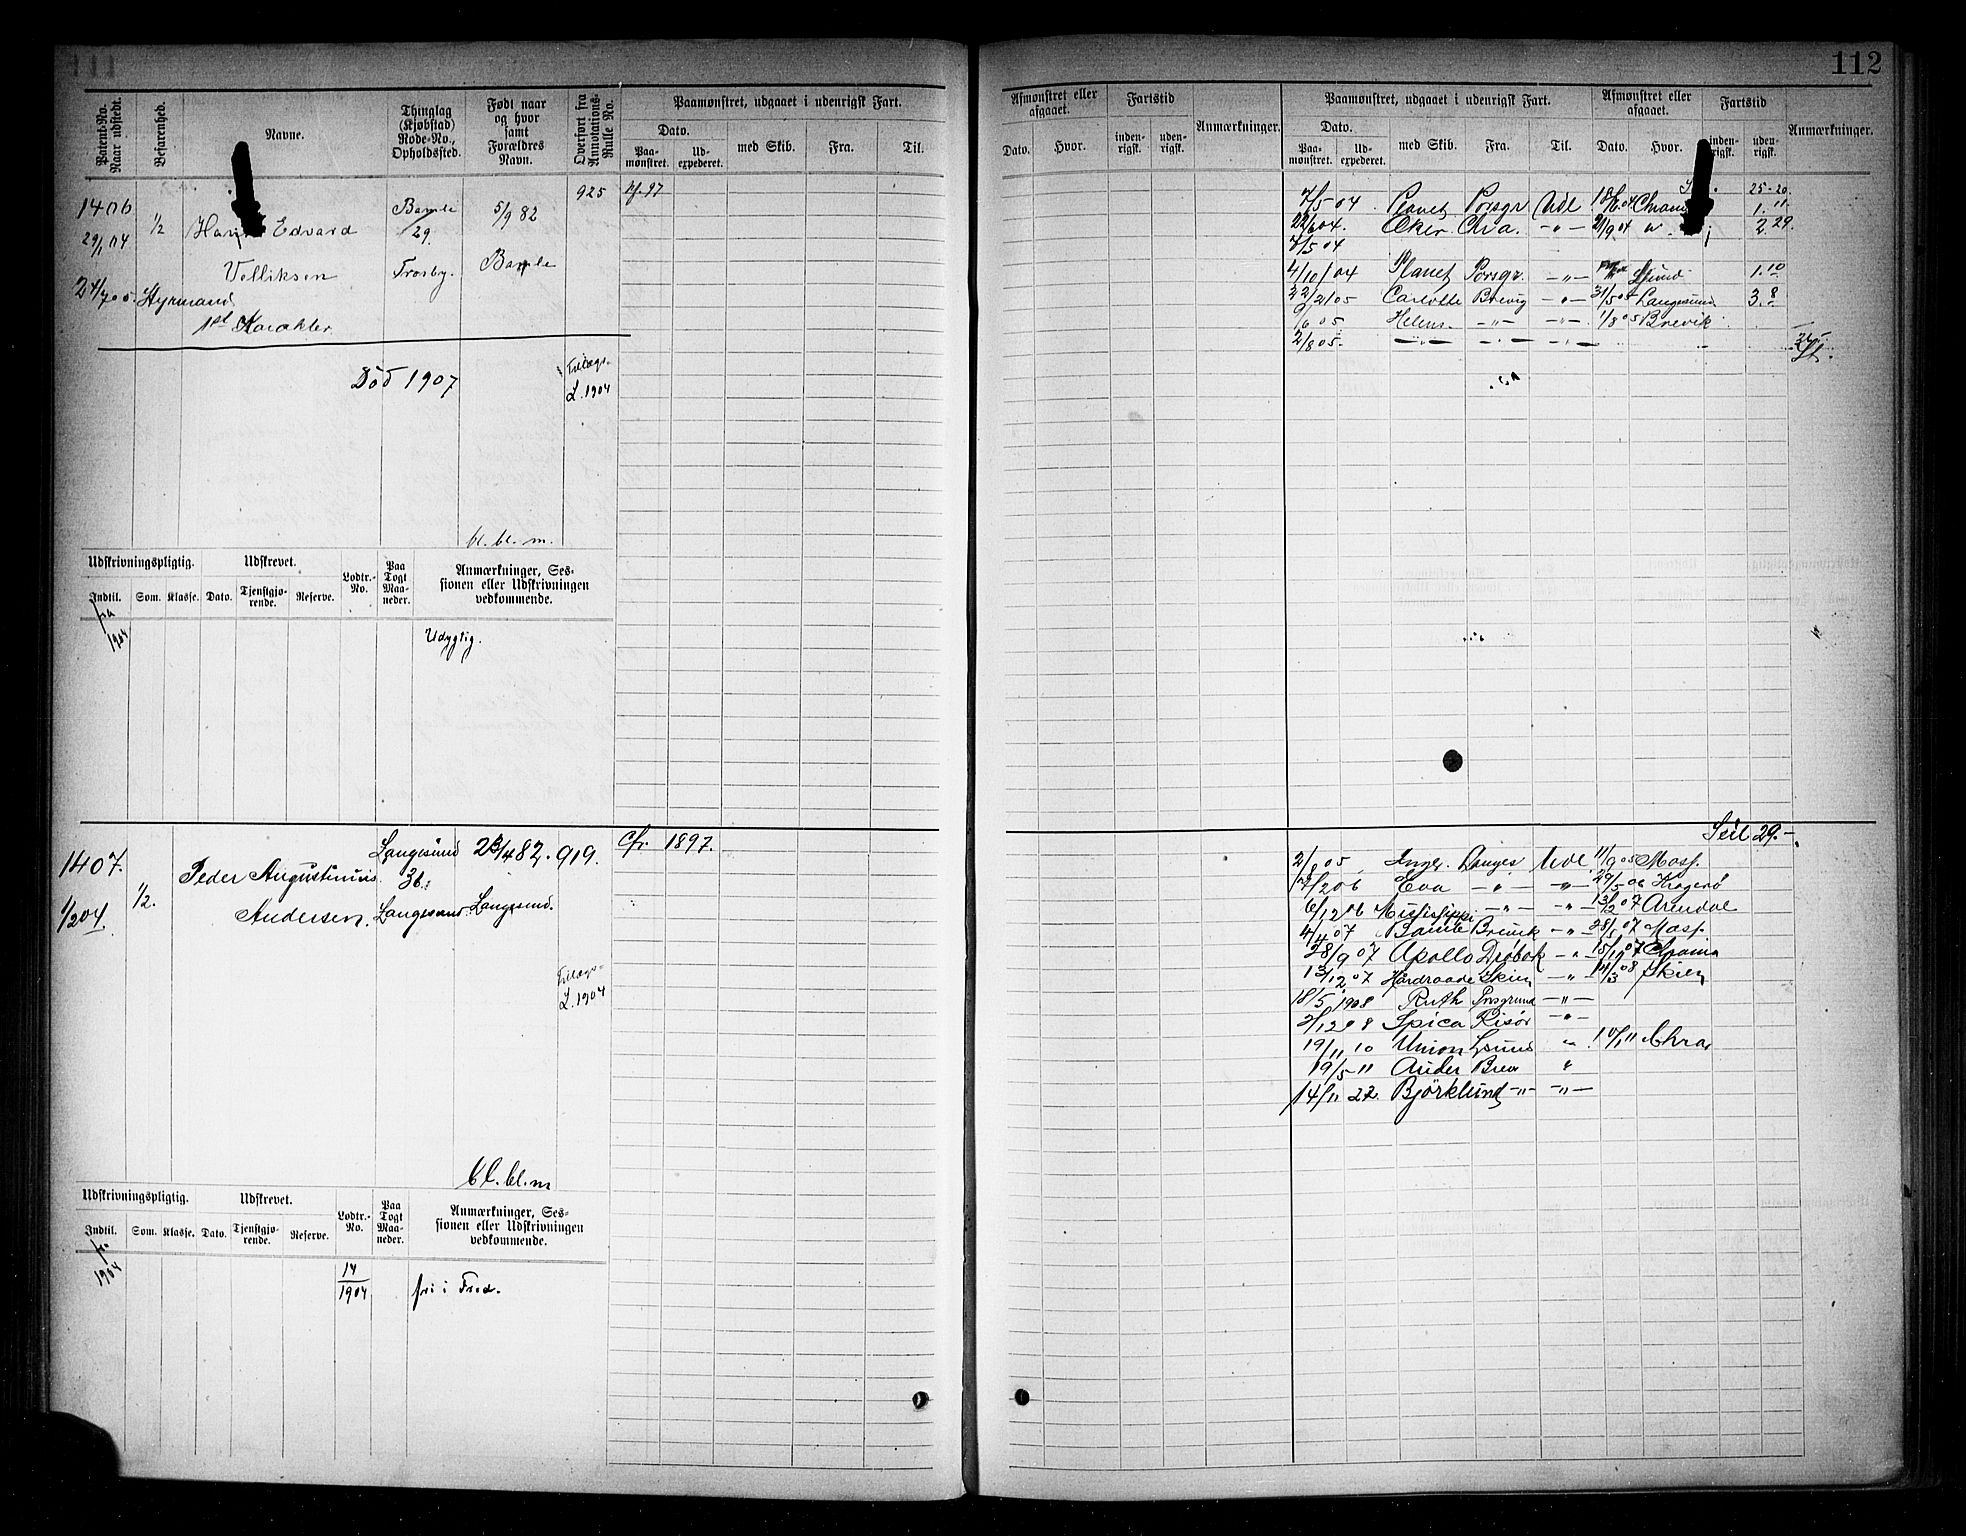 112
Patent-No. Naar udstedt.
Befarenhed.
Navne.
Thinglag (Kjøbstad) Rode-No., Opholdssted.
Født naar og hvor samt Forældres Navn.
Overført fra Annotations-Rulle No.
Paamønstret, udgaaet i udenrigsk Fart.
Dato.
Paa-mønstret.
Ud-expederet.
med Skib.
Fra.
Til.
Afmønstret eller afgaaet.
Dato.
Hvor.
Fartstid
inden-rigsk.
uden-rigsk.
Anmærkninger.
Paamønstret, udgaaet i udenrigsk Fart.
Dato.
Paa-mønstret.
Ud-expederet.
med Skib.
Fra.
Til.
Afmønstret eller afgaaet.
Dato.
Hvor.
Fartstid
inden-rigst.
uden-rigst.
Anmærkninger.
1406
29/1 04
1/2
Edvard
Velliksen
Bamle
29.
Trosby.
5/9 82
Bamle
925
Hyrmand
1ste Karakter
Død 1907
Tillægs-
L. 1904
bl. bl. m.
25-20.
7/5 04 Planet Porsgr Udl 18/6 04
22/6 04. Oker. Chra. -"- 21/9 04 2 29.
7/5 04
4/10 04 Planet Porsgr. -"- 1.10
22/2 05 Carlotte Brevig -"- 31/5 05 Langesund 3.8
9/6 05 Helene -"- -"- 1/8 05 Brevik
2/8 05. -"- -"- -"-
Udskrivningspligtig.
Udskrevet.
Lodtr.-No.
Paa Togt Maa-neder.
Anmærkninger, Ses-
sionen eller Udskrivningen
vedkommende.
Indtil.
Som.
Klasse.
Dato.
Tjenstgjø-rende.
Reserve.
fra
1904
Udygtig.
1407.
1/2 04.
1/2.
Peder Augustinius
Andersen.
Langesund
36.
Langesund
23/4 82.
Langesund.
919.
Cfr. 1897.
Tillægs-
L. 1904
bl. bl. m
Seil 29.-
2/8 05 Inger. Langes Udl. 11/9 05 Mosj.
7/2 06 Eva -"- -"- 29/5 06 Kragerø
6/12 06 Mississippi -"- -"- 13/2 07 Arendal
4/4 07 Bamle Brevik -"- 28/5 07 Mosj.
28/9 07 Apollo Drøbak -"- 15/10 07 Chrania
13/12 07 Hardraade Skien -"- 14/3 08 Skien
18/5 1908 Ruth Porsgrund -"-
2/12 08 Spica Risør -"-
19/11 10 Union Lsund " 10/1 11 Chra,
19/5 11 Auder Brev "
14/11 22. Bjørklund -"- -"-
Udskrivningspligtig.
Udskrevet.
Lodtr.-No.
Paa Togt Maa-neder.
Anmærkninger, Ses-
sionen eller Udskrivningen
vedkommende.
Indtil.
Som.
Klasse.
Dato.
Tjenstgjø-rende.
Reserve.
fra
1904
14
1904
fri i Fred.